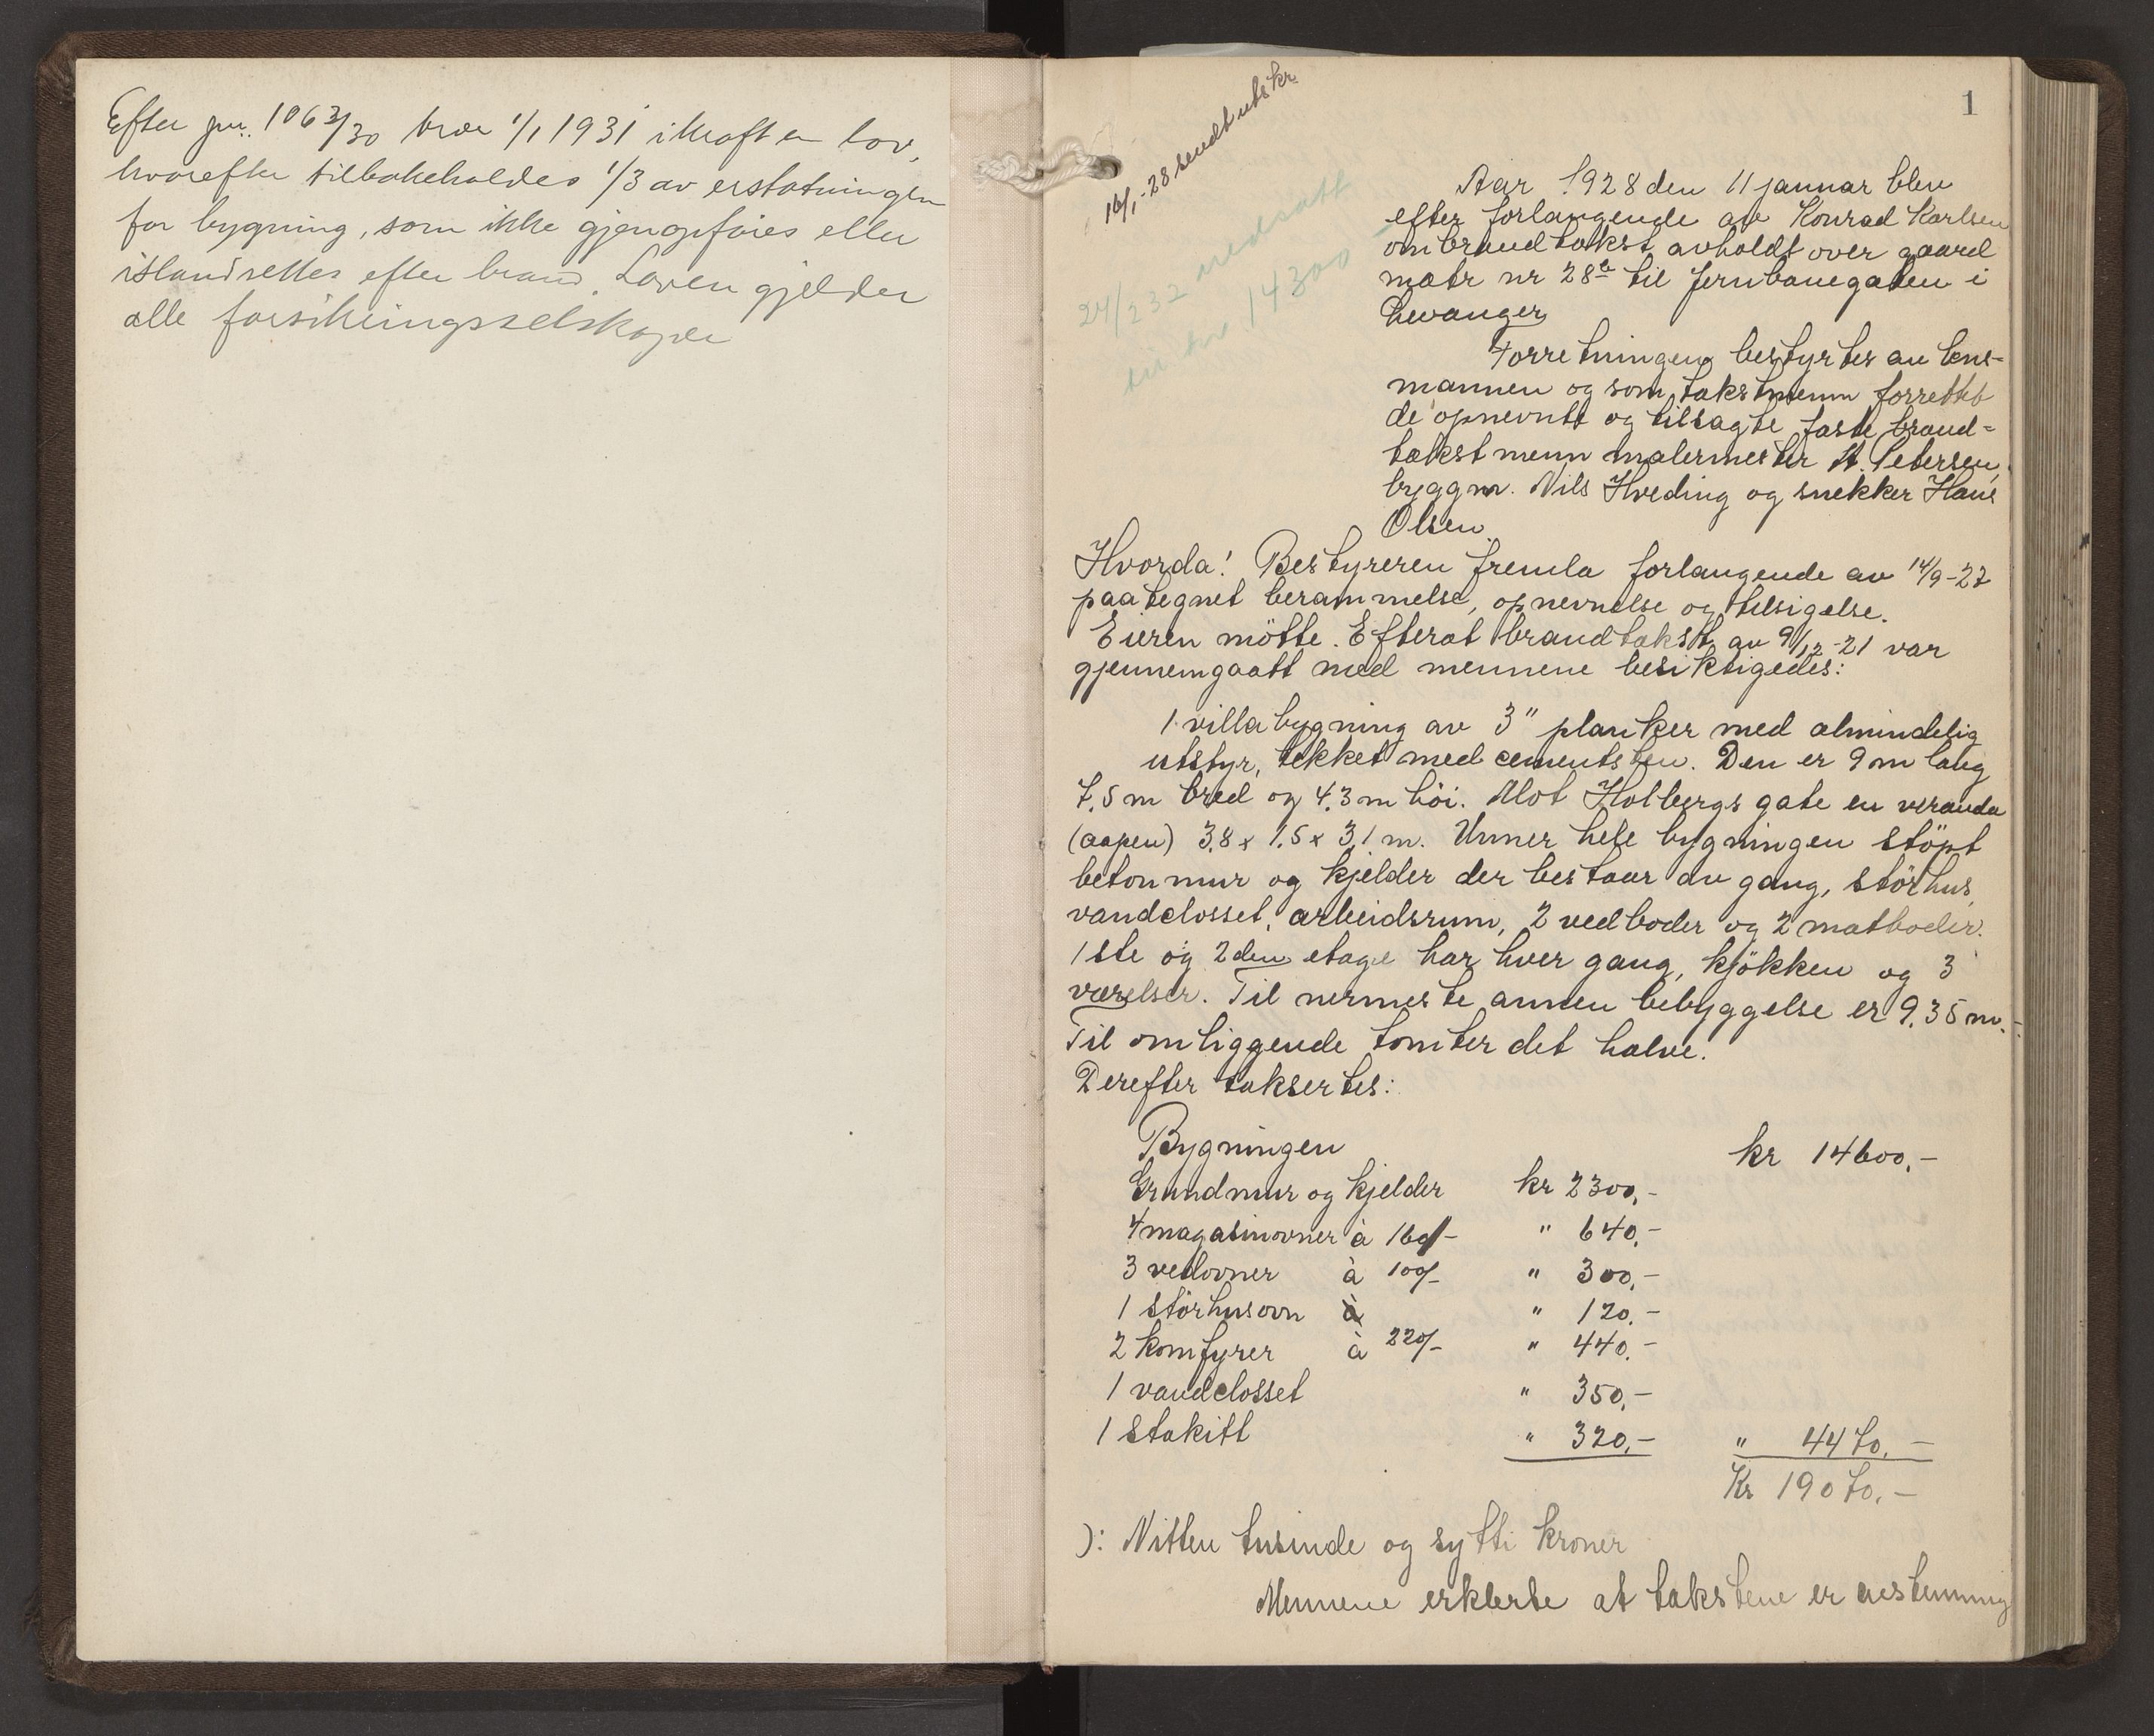 Efter jnr. 1063/30 trær 1/1 1931 i kraft en lov,
hvorefter tilbakeholdes 1/3 av erstatningen
for bygning, som ikke gjenopføies eller
istandsettes efter brand. Loven gjelder
alle forsikringsselskaper
1
16/1-28 sendt utskr.
24/2 32 nedsatt
til kr. 14300
Aar 1928 den 11 januar blev
efter forlangende av Konrad Karlsen
om brandtakst avholdt over gaard
matr nr 28b til Jernbanegaten i
Levanger
Forretningen bestyrtes av lens-
mannen og som takstmenn forrettet
de opnevnte og tilsagte faste brand-
takstmenn malermester A. Petersen,
byggm. Nils Hveding og snekker Hans
Olsen.
Hvorda! Bestyreren fremla forlangende av 14/9-27
paategnet berammelse, opnevnelse og tilsigelse.
Eieren mötte. Efterat brandtakst av 9/12-21 var
gjennemgaatt med mennene besiktigedes:
1 villabygning av 3" planker med almindelig
utstyr, tekket med cementsten. Den er 9 m lang
7,5 m bred og 4,3 m höi. Mot Holbergs gate en veranda
(aapen) 3,8 x 1,5 x 3,1 m. Unner hele bygningen stöpt
betonmur og kjelder der bestaar av gang, störhus,
vandclosset, arbeidsrum, 2 vedboder og 2 matboder.
1ste og 2den etage har hver gang, kjökken og 3
værelser. Til nermeste annen bebyggelse er 9,35 m.-
Til omliggende tomter det halve.
Derefter taksertes:
Bygningen kr 14600,-
Grundmur og kjelder kr 2300,-
4 magasinovner à 160/- " 640,-
3 vedovner à 100/- " 300,-
1 störhusovn à " 120,-
2 komfyrer à 220/- " 440,-
1 vandclosset " 350,-
1 stakitt " 320,- " 4470,-
Kr 19070,-
): Nitten tusinde og sytti kroner
Mennene erklerte at takstene er enstemmig